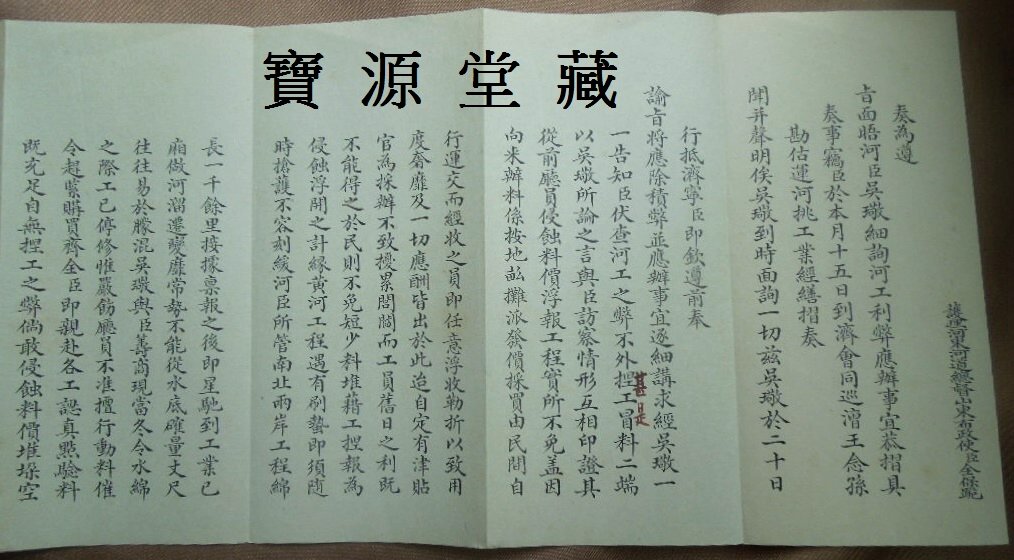 寶源堂藏
護理河東河道總督山東布政使臣全保跪
奏為遵
旨面晤河臣吳璥細詢河工利弊應辦事宜恭摺具
奏事竊臣於本月十五日到濟會同巡漕王念孫
勘估運河挑工業經繕摺奏
聞并聲明俟吳璥到時面詢一切茲吳璥於二十日
行抵濟寧臣即欽遵前奉
諭旨將應除積弊並應辦事宜逐細講求經吳璥一
一告知臣伏查河工之弊不外捏工冒料二端
甚是
以吳璥所論之言與臣訪察情形互相印證其
從前廳員侵蝕料價浮報工程實所不免蓋因
向來辦料係按地畝攤派發價採買由民間自
行運交而經收之員即任意浮收勒折以致用
度奢靡及一切應酬皆出於此迨自定有津貼
官為採辦不致擾累閭閻而工員舊日之利既
不能得之於民則不免短少料堆藉工捏報為
侵蝕浮開之計緣黃河工程遇有刷蟄即須隨
時搶護不容刻緩河臣所管南北兩岸工程綿
長一千餘里接據稟報之後即星馳到工業已
廂做河溜遷變靡常勢不能從水底確量丈尺
往往易於朦混吳璥與臣籌商現當冬令水綿
之際工已停修惟嚴飭廳員不准擅行動料催
令趕緊購買齊全臣即親赴各工認真點驗料
既充足自無捏工之弊倘敢侵蝕料價堆垛空